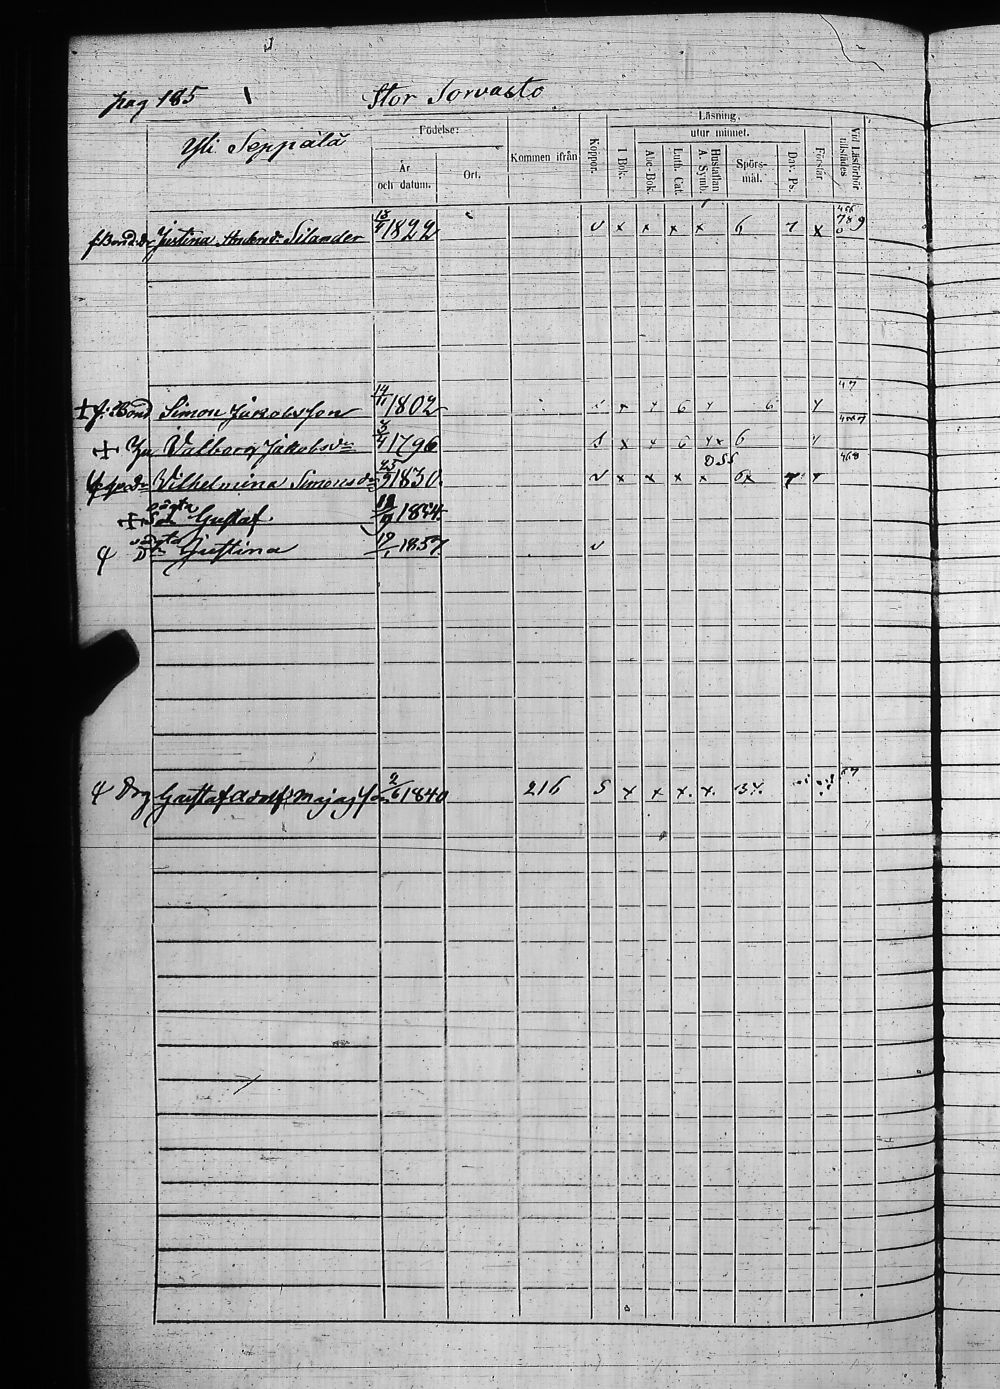 pag 185 Stor Sorvasto
Yli Seppälä
Födelse:
År och datum.
Ort.
Kommen ifrån
Koppor.
Läsning,
utur minnet.
I Bok.
Abc-Bok.
Luth. Cat.
Hustaflan A. Symb.
Spörs-mål.
Dav. Ps.
Förstår
Vid Läsförhör tillstädes
Justina Andersdr Silander 13/7 1822 v x x x x 6 7 x 789
† f. Bond Simon Jakobsson 14/11 1802 x 6 6 47
† Hu Valborg Jakobsdr 3/4 1796 s x 6 6
DSS
Vilhelmina Simonsdr 25/3 1830 v x x x x 6x 468
† oägta Son Gustaf 1854
oägta Dr Justina 19/1 1857 v
Drg Gustaf Adolf Majasson 2/6 1840 216 S x x x. x. 67